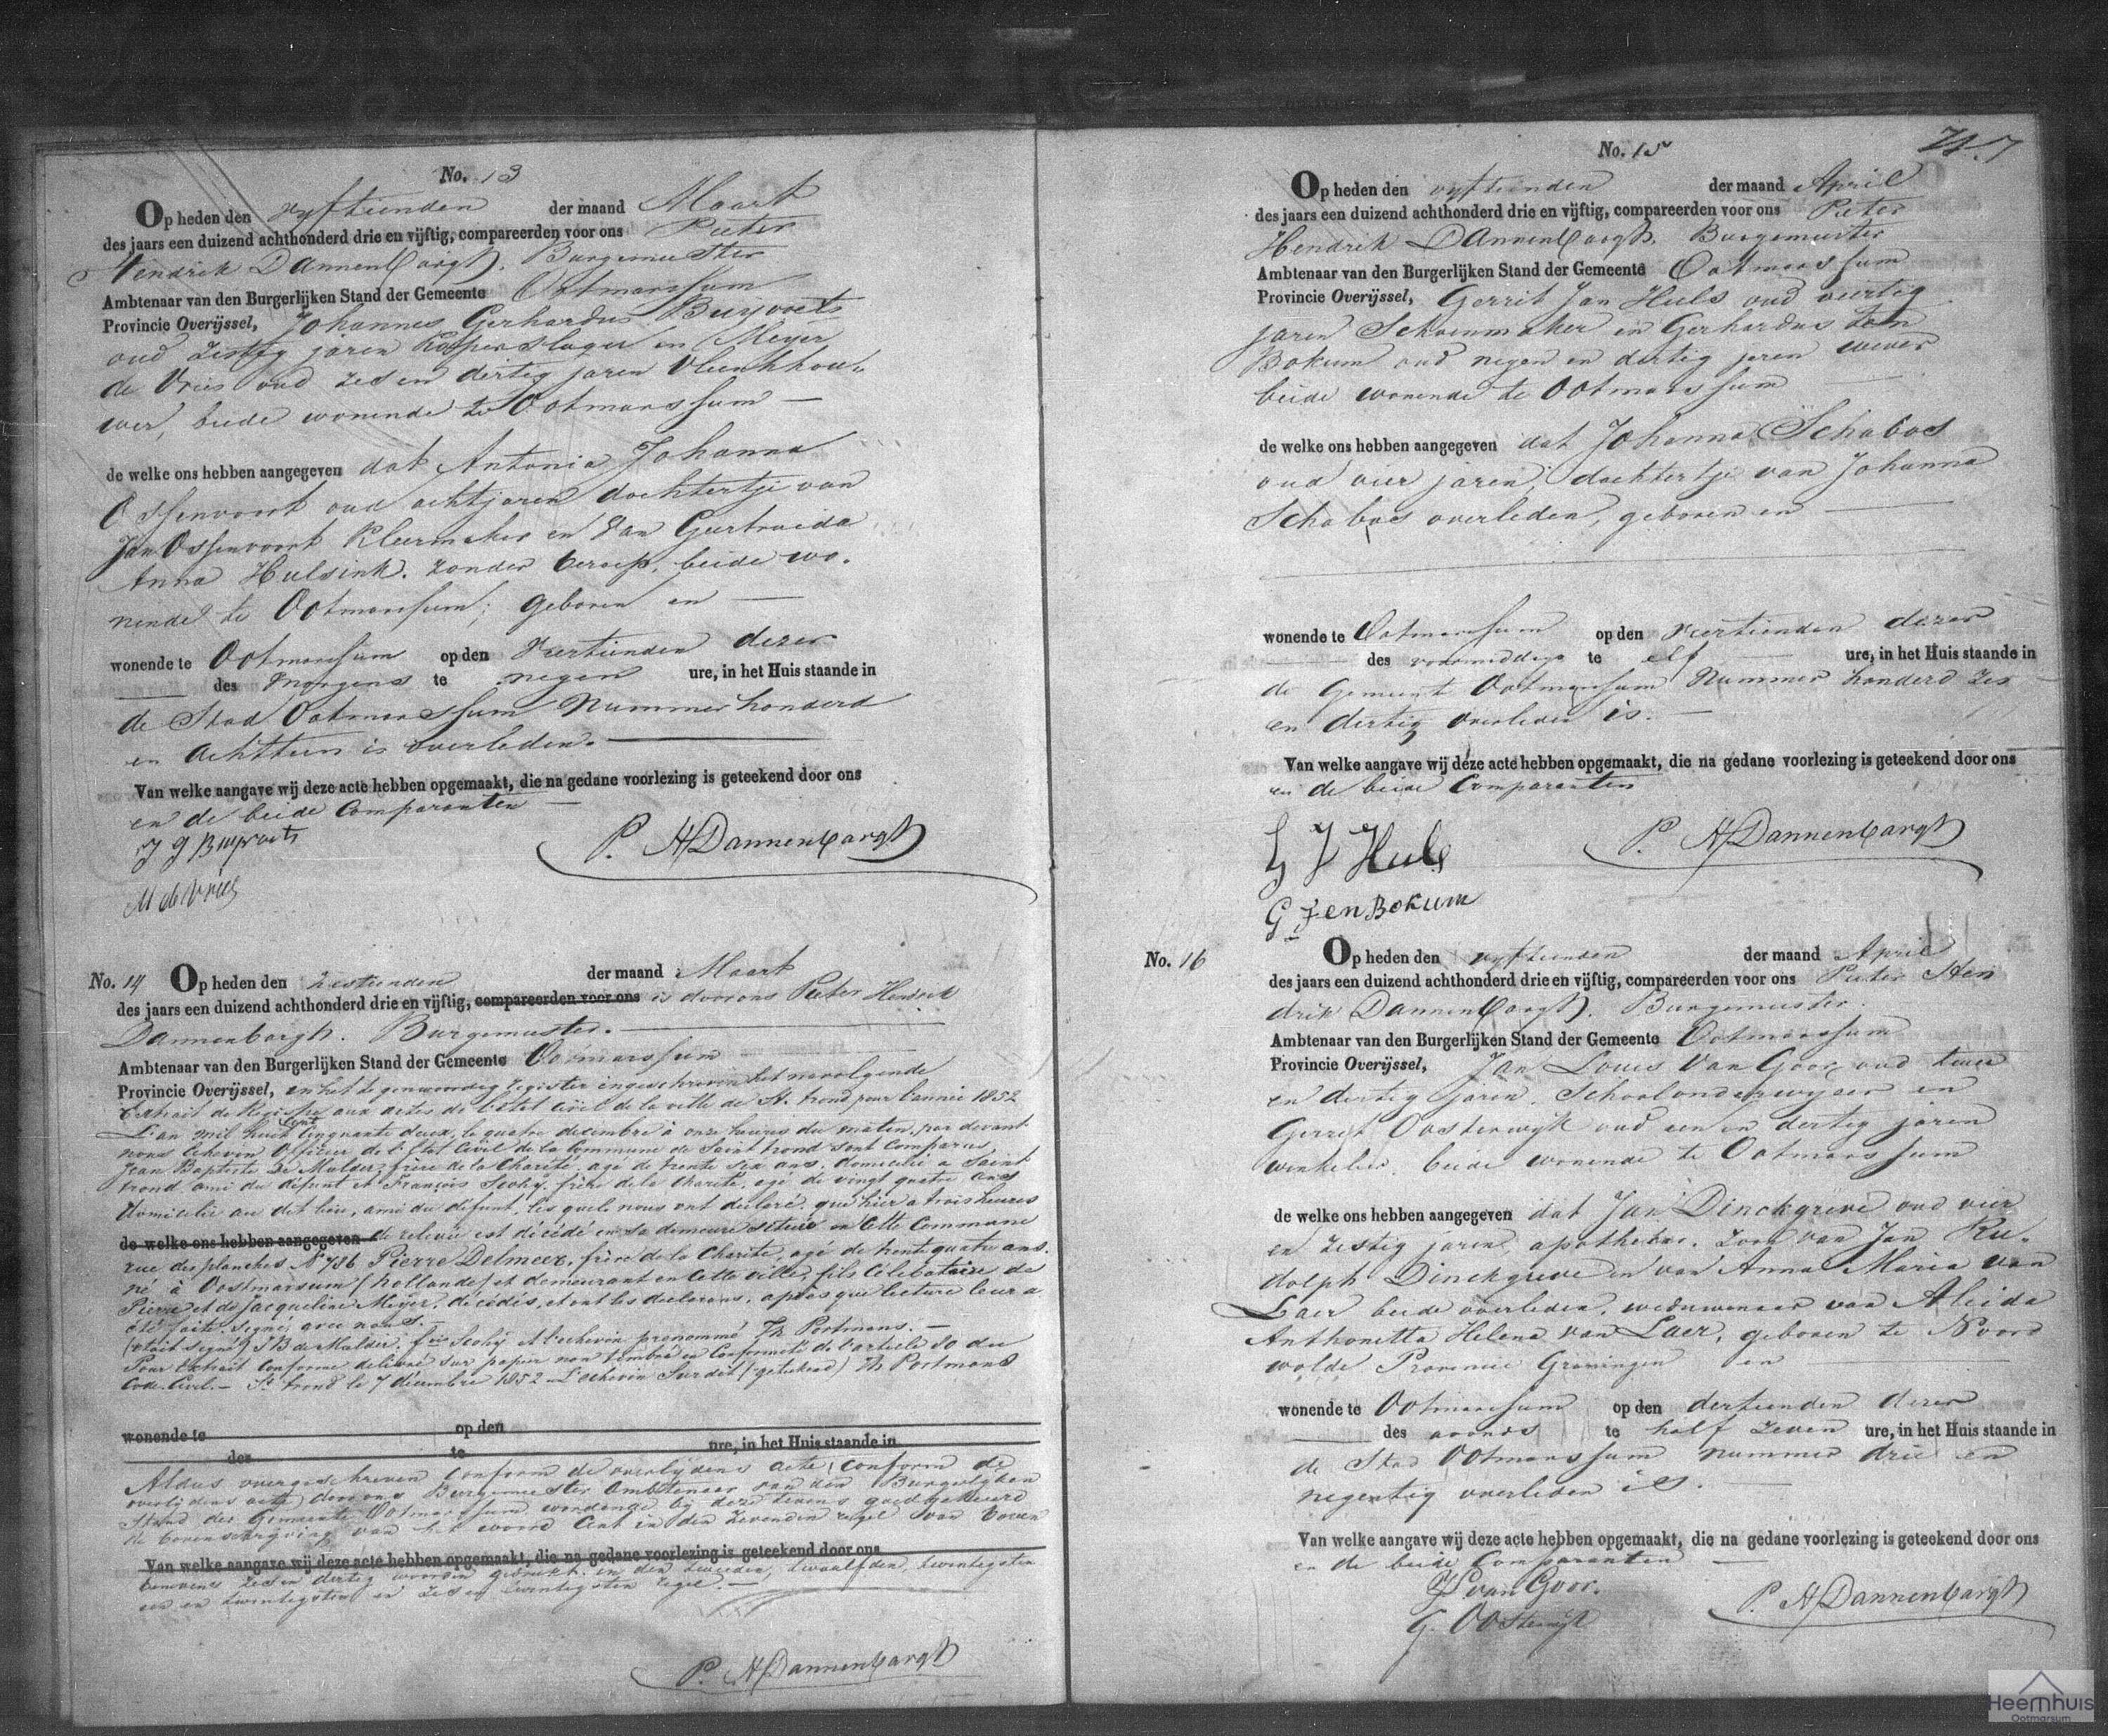 No. 13
Op heden den vyftienden der maand Maart
des jaars een duizend achthonderd drie en vijftig, compareerden voor ons Pieter
Hendrik Dannenbargh. Burgemeester
Ambtenaar van den Burgerlijken Stand der Gemeente Ootmarssum
Provincie Overijssel, Johannes Gerhardus Buyvoets
oud zestig jaren Koperslager en Meyer
de Vries oud zes en dertig jaren Vleeschhou-
wer, beide wonende te Ootmarssum —
de welke ons hebben aangegeven dat Antonia Johanna
Ossenvoort oud acht jaren dochtertje van
Jan Ossenvoort Kleermaker en van Geertruida
Anna Hulsink. zonder beroep, beide wo-
nende te Ootmarssum; geboren en —
wonende te Ootmarssum op den Veertienden dezer
des morgens te negen ure, in het Huis staande in
de Stad Ootmarssum Nummer honderd
en achttien is overleden.
Van welke aangave wij deze acte hebben opgemaakt, die na gedane voorlezing is geteekend door ons
en de beide Comparanten —
J G Buyvoets
P. H Dannenbargh
M de Vries
No. 14 Op heden den zestienden der maand Maart
des jaars een duizend achthonderd drie en vijftig, compareerden voor ons is door ons Pieter Hendrik
Dannenbargh. Burgemeester.
Ambtenaar van den Burgerlijken Stand der Gemeente Ootmarssum
Provincie Overijssel, en het tegenwoordig register ingeschreven het navolgende
Extrait du Registre aux actes de l'etat civil de la ville de St. trond pour l'année 1852
L'an mil huit cent cinquante deux, le quatre decembre à onze heures du matin, par devant
nous Echevin Officier de l'Etat Civil de la Commune de Saint trond sont comparus
Jean Baptiste De Mulder, frère de la Charité, agé de trente six ans, domicilié a Saint
trond ami du défunt et François Sechy, frère de la charité, agé de vingt quatre ans
domicilié au dit lieu, ami du défunt, les quels nous ont declaré, que hier a trois heures
de welke ons hebben aangegeven de relevée est décédé en sa demeure située en cette Commune
rue des planches No 786 Pierre Delmeer, frère de la Charité, agé de trente quatre ans.
né à Oostmarsum (hollande) et demeurant en cette ville, fils Célébataire de
Pierre et de Jacqueline Meyer, décédés, et ont les declarans, après que lecture leur a
été faite, signé avec nous.
(était signé) J B de Mulder. fois Sechy et l'echevin prenommé Th Portmans. —
Pour extrait conforme delivré sur papier non timbré en Conformité de l'article 80 du
Code Civil. — St trond le 7 décembre 1852 L'echevin Surdit (geteekend) Th Portmans
wonende te op den
des te ure, in het Huis staande in
Aldus overgeschreven Conform de overlijdens acte, conform de
overlijdens acte door ons Burgemeester Ambtenaar van den Burgerlyken
Stand der Gemeente Ootmarssum wordende by deze tevens goedgekeurd
de bovenschryving van het woord Cent in den zevenden regel van boven
Van welke aangave wij deze acte hebben opgemaakt, die na gedane voorlezing is geteekend door ons
benevens zes en dertig woorden gedrukt in den tweeden, twaalfden, twintigsten
een en twintigsten en zes en twintigsten regel. —
P. H Dannenbargh
No. 15
Op heden den vyftienden der maand April
des jaars een duizend achthonderd drie en vijftig, compareerden voor ons Pieter
Hendrik Dannenbargh. Burgemeester
Ambtenaar van den Burgerlijken Stand der Gemeente Ootmarssum
Provincie Overijssel, Gerrit Jan Huls oud veertig
jaren Schoenmaker en Gerhardus ten
Bokum oud negen en dertig jaren wever
beide wonende te Ootmarssum —
de welke ons hebben aangegeven dat Johanna Schabos
oud vier jaren, dochtertje van Johanna
Schabos overleden, geboren en —
wonende te Ootmarssum op den veertienden dezer
des voormiddags te elf ure, in het Huis staande in
de Gemeent Ootmarssum Nummer honderd zes
en dertig overleden is. —
Van welke aangave wij deze acte hebben opgemaakt, die na gedane voorlezing is geteekend door ons
en de beide Comparanten
G J Huls
P. H Dannenbargh
G ten Bokum
No. 16 Op heden den vyftienden der maand April
des jaars een duizend achthonderd drie en vijftig, compareerden voor ons Pieter Hen
drik Dannenbargh. Burgemeester.
Ambtenaar van den Burgerlijken Stand der Gemeente Ootmarssum
Provincie Overijssel, Jan Louis Van Goor oud twee
en dertig jaren, Schoolonderwyser en
Gerrit Oosterwyk oud een en dertig jaren
winkelier, beide wonende te Ootmarssum
de welke ons hebben aangegeven dat Jan Dinckgreve oud vier
en zestig jaren, apotheker. zoon van Jan Ru-
dolph Dinckgreve en van Anna Maria van
Laer beide overleden, weduwenaar van Aleida
Anthonetta Helena van Laer, geboren te Noord
wolde Provincie Groningen en —
wonende te Ootmarssum op den dertienden dezer
des avonds te half zeven ure, in het Huis staande in
de Stad Ootmarssum nummer drie en
negentig overleden is. —
Van welke aangave wij deze acte hebben opgemaakt, die na gedane voorlezing is geteekend door ons
en de beide Comparanten —
JL van Goor.
P. H Dannenbargh
G. Oosterwijk
Heemhuis
Ootmarsum